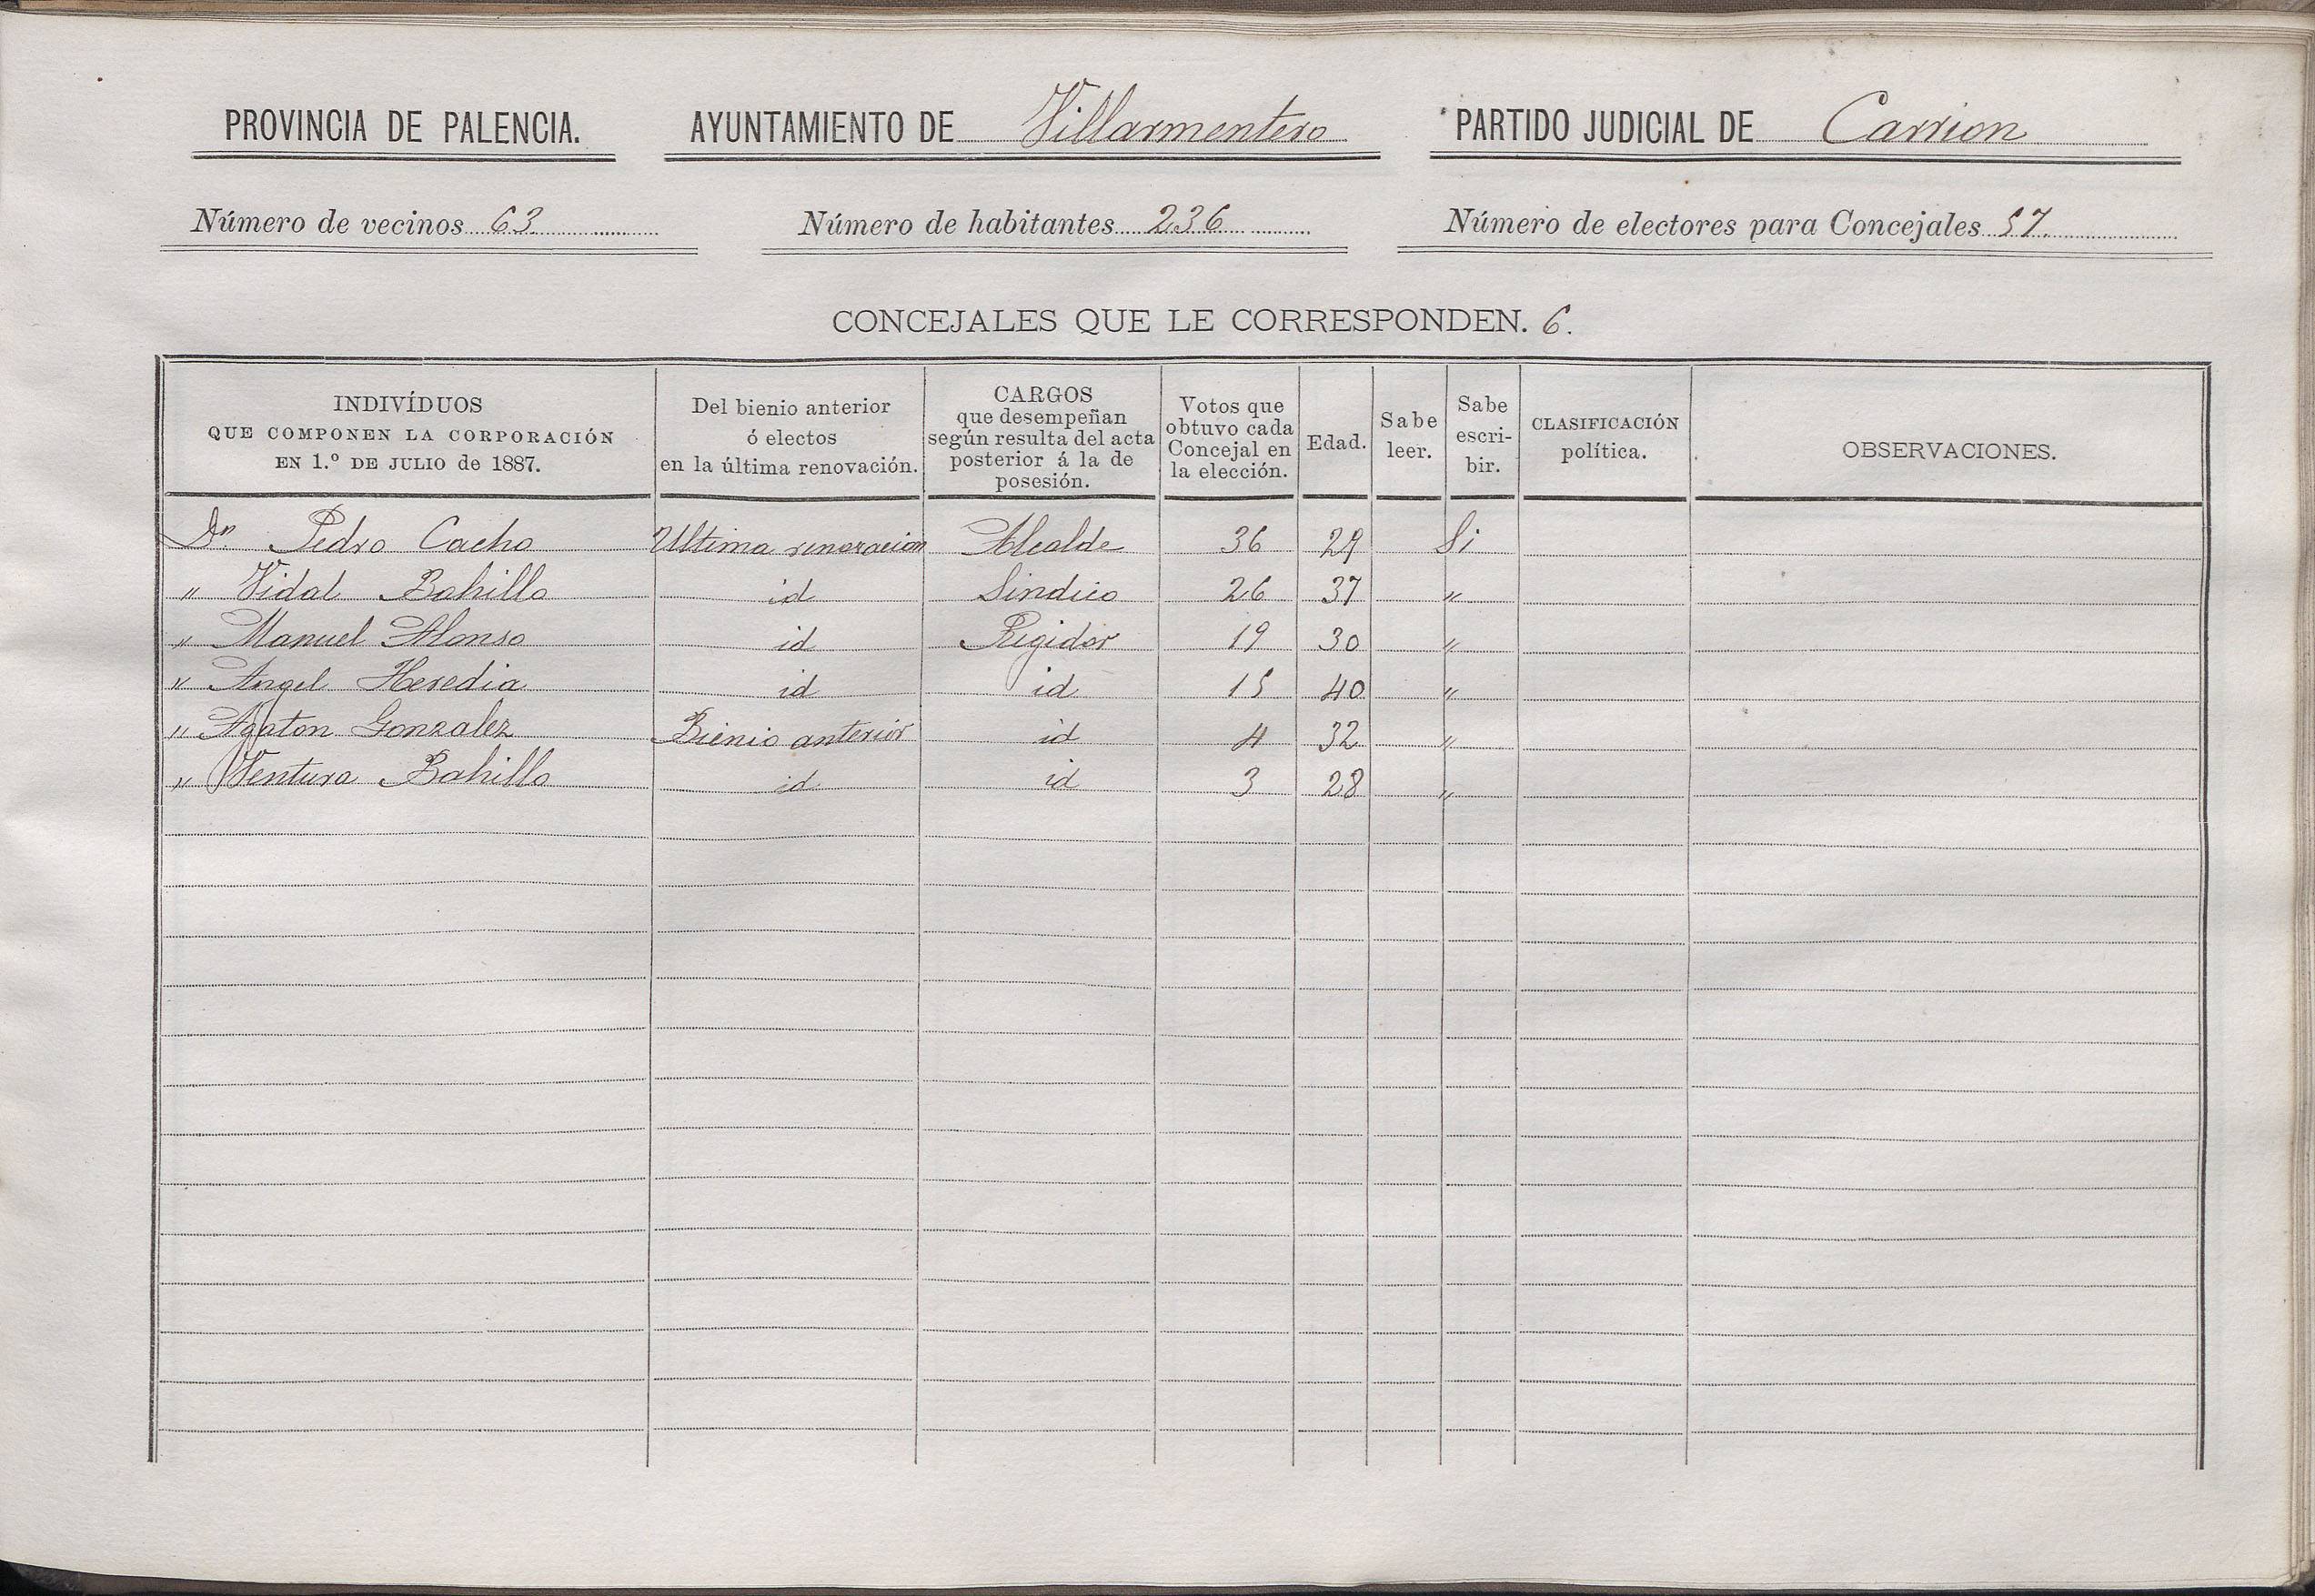 PROVINCIA DE PALENCIA. AYUNTAMIENTO DE Villarmentero PARTIDO JUDICIAL DE Carrion
Número de vecinos 63 Número de habitantes 236 Número de electores para Concejales 57.
CONCEJALES QUE LE CORRESPONDEN. 6.
INDIVÍDUOS
QUE COMPONEN LA CORPORACIÓN
EN 1.º DE JULIO de 1887.
Del bienio anterior
ó electos
en la última renovación.
CARGOS
que desempeñan
según resulta del acta
posterior á la de
posesión.
Votos que
obtuvo cada
Concejal en
la elección.
Edad.
Sabe
leer.
Sabe
escri-
bir.
CLASIFICACIÓN
política.
OBSERVACIONES.
Dn. Pedro Cacho Ultima renovacion Alcalde 36 29 Si
" Vidal Bahillo id Sindico 26 37 "
" Manuel Alonso id Regidor 19 30 "
" Angel Heredia id id 15 40 "
" Agaton Gonzalez Bienio anterior id 4 32 "
" Ventura Bahillo id id 3 28 "